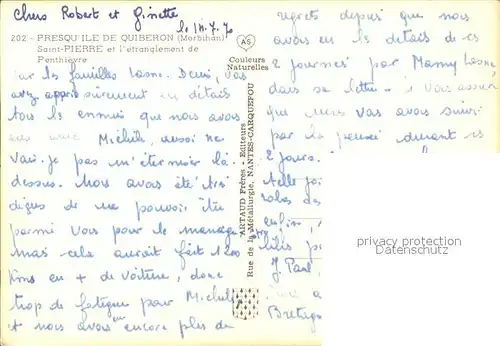 Chers Robert et Ginette
le 14.7.70
202 - PRESQU'ILE DE QUIBERON (Morbihan)
Saint-PIERRE et l'étranglement de
Penthièvre
AS
Couleurs
Naturelles
sur les familles Lasne. Denis, vous
avez appris sûrement en détails
tous les ennuis que nous avons
eus avec Michèle, aussi ne
vais-je pas m'éterniser là
dessus. Nous avons été très
de ne pouvoir être
parmi vous pour le mariage
mais cela aurait fait
kms en + de voiture, donc
trop de fatigue pour Michèle
et nous avons eu encore plus de
ARTAUD Frères - Editeurs
Rue de la Métallurgie, NANTES-CARQUEFOU
regrets depuis que nous
avons eu les détails de ces
2 journées par Mamy Lasne
dans sa lettre. Vous
que nous vous avons suivi
par la pensée durant ces
2 jours.
enfin
J. Paul
Bretagne
privacy protection
Datenschutz